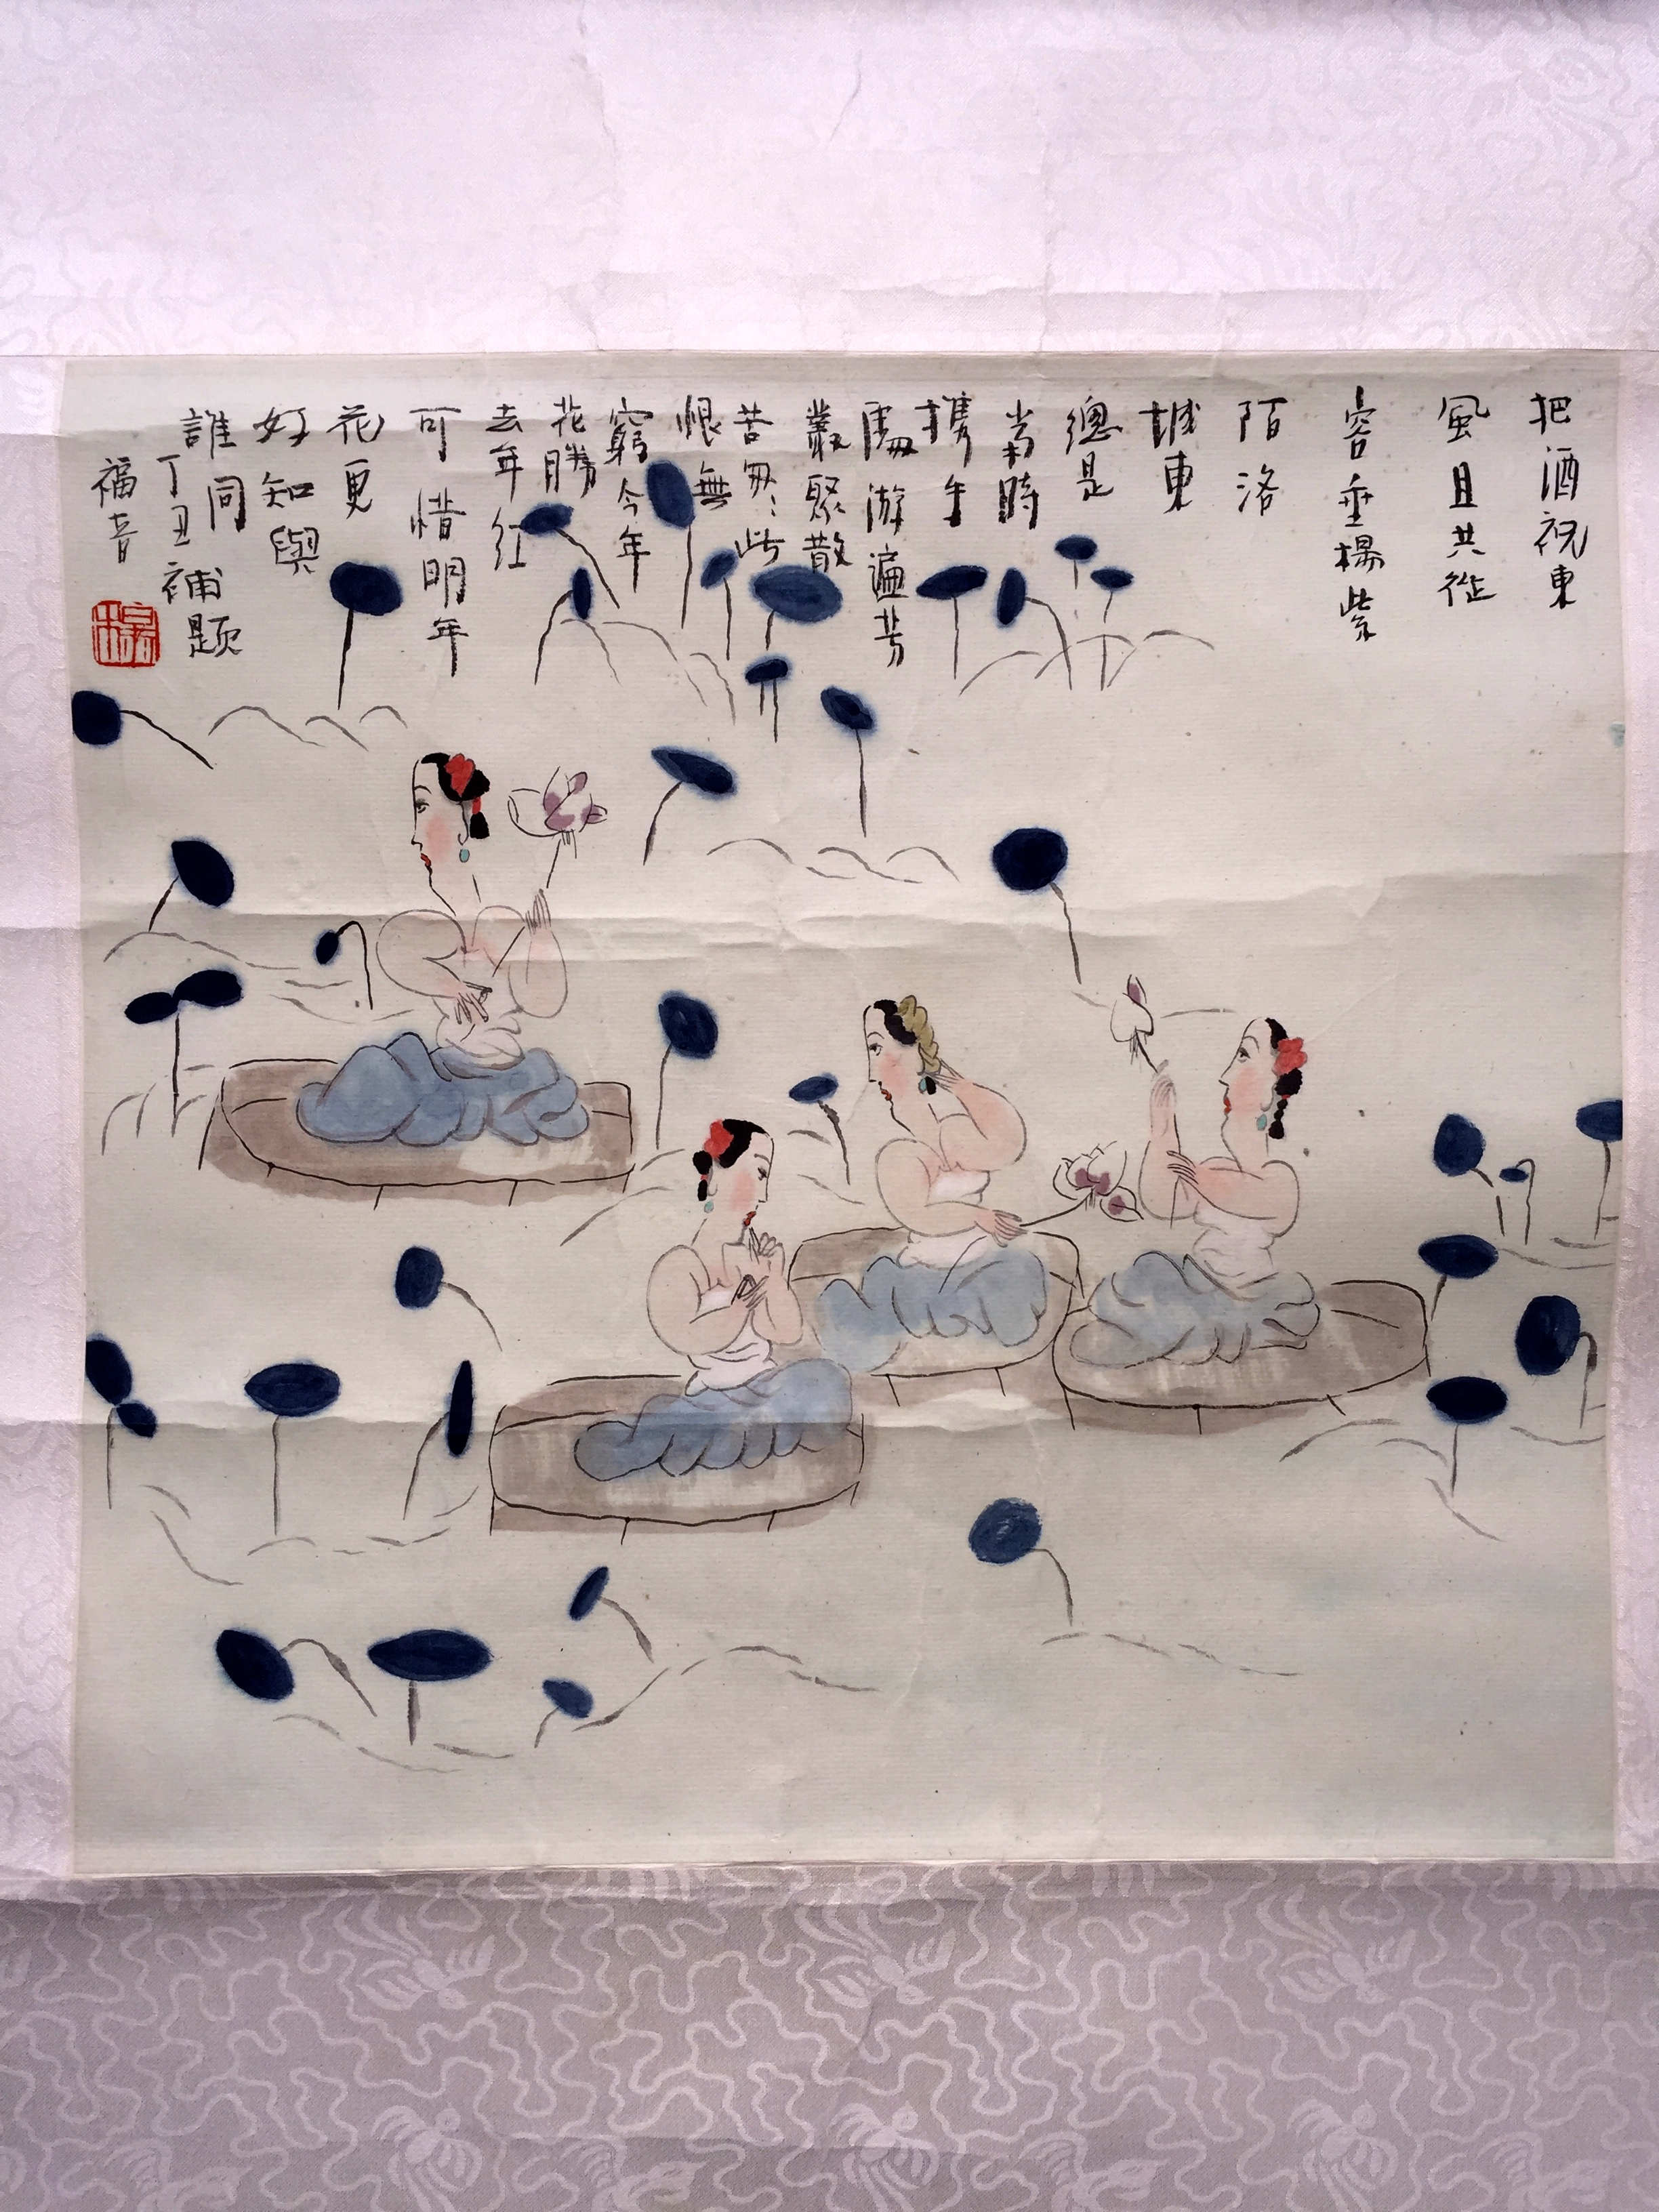 把酒祝東
風且共從
容垂楊紫
陌洛
城東
總是
當時
攜手
處游遍芳
叢聚散
苦匆々此
恨無
窮今年
花勝
去年紅
可惜明年
花更
好知與
誰同
丁丑補題
福音
楊